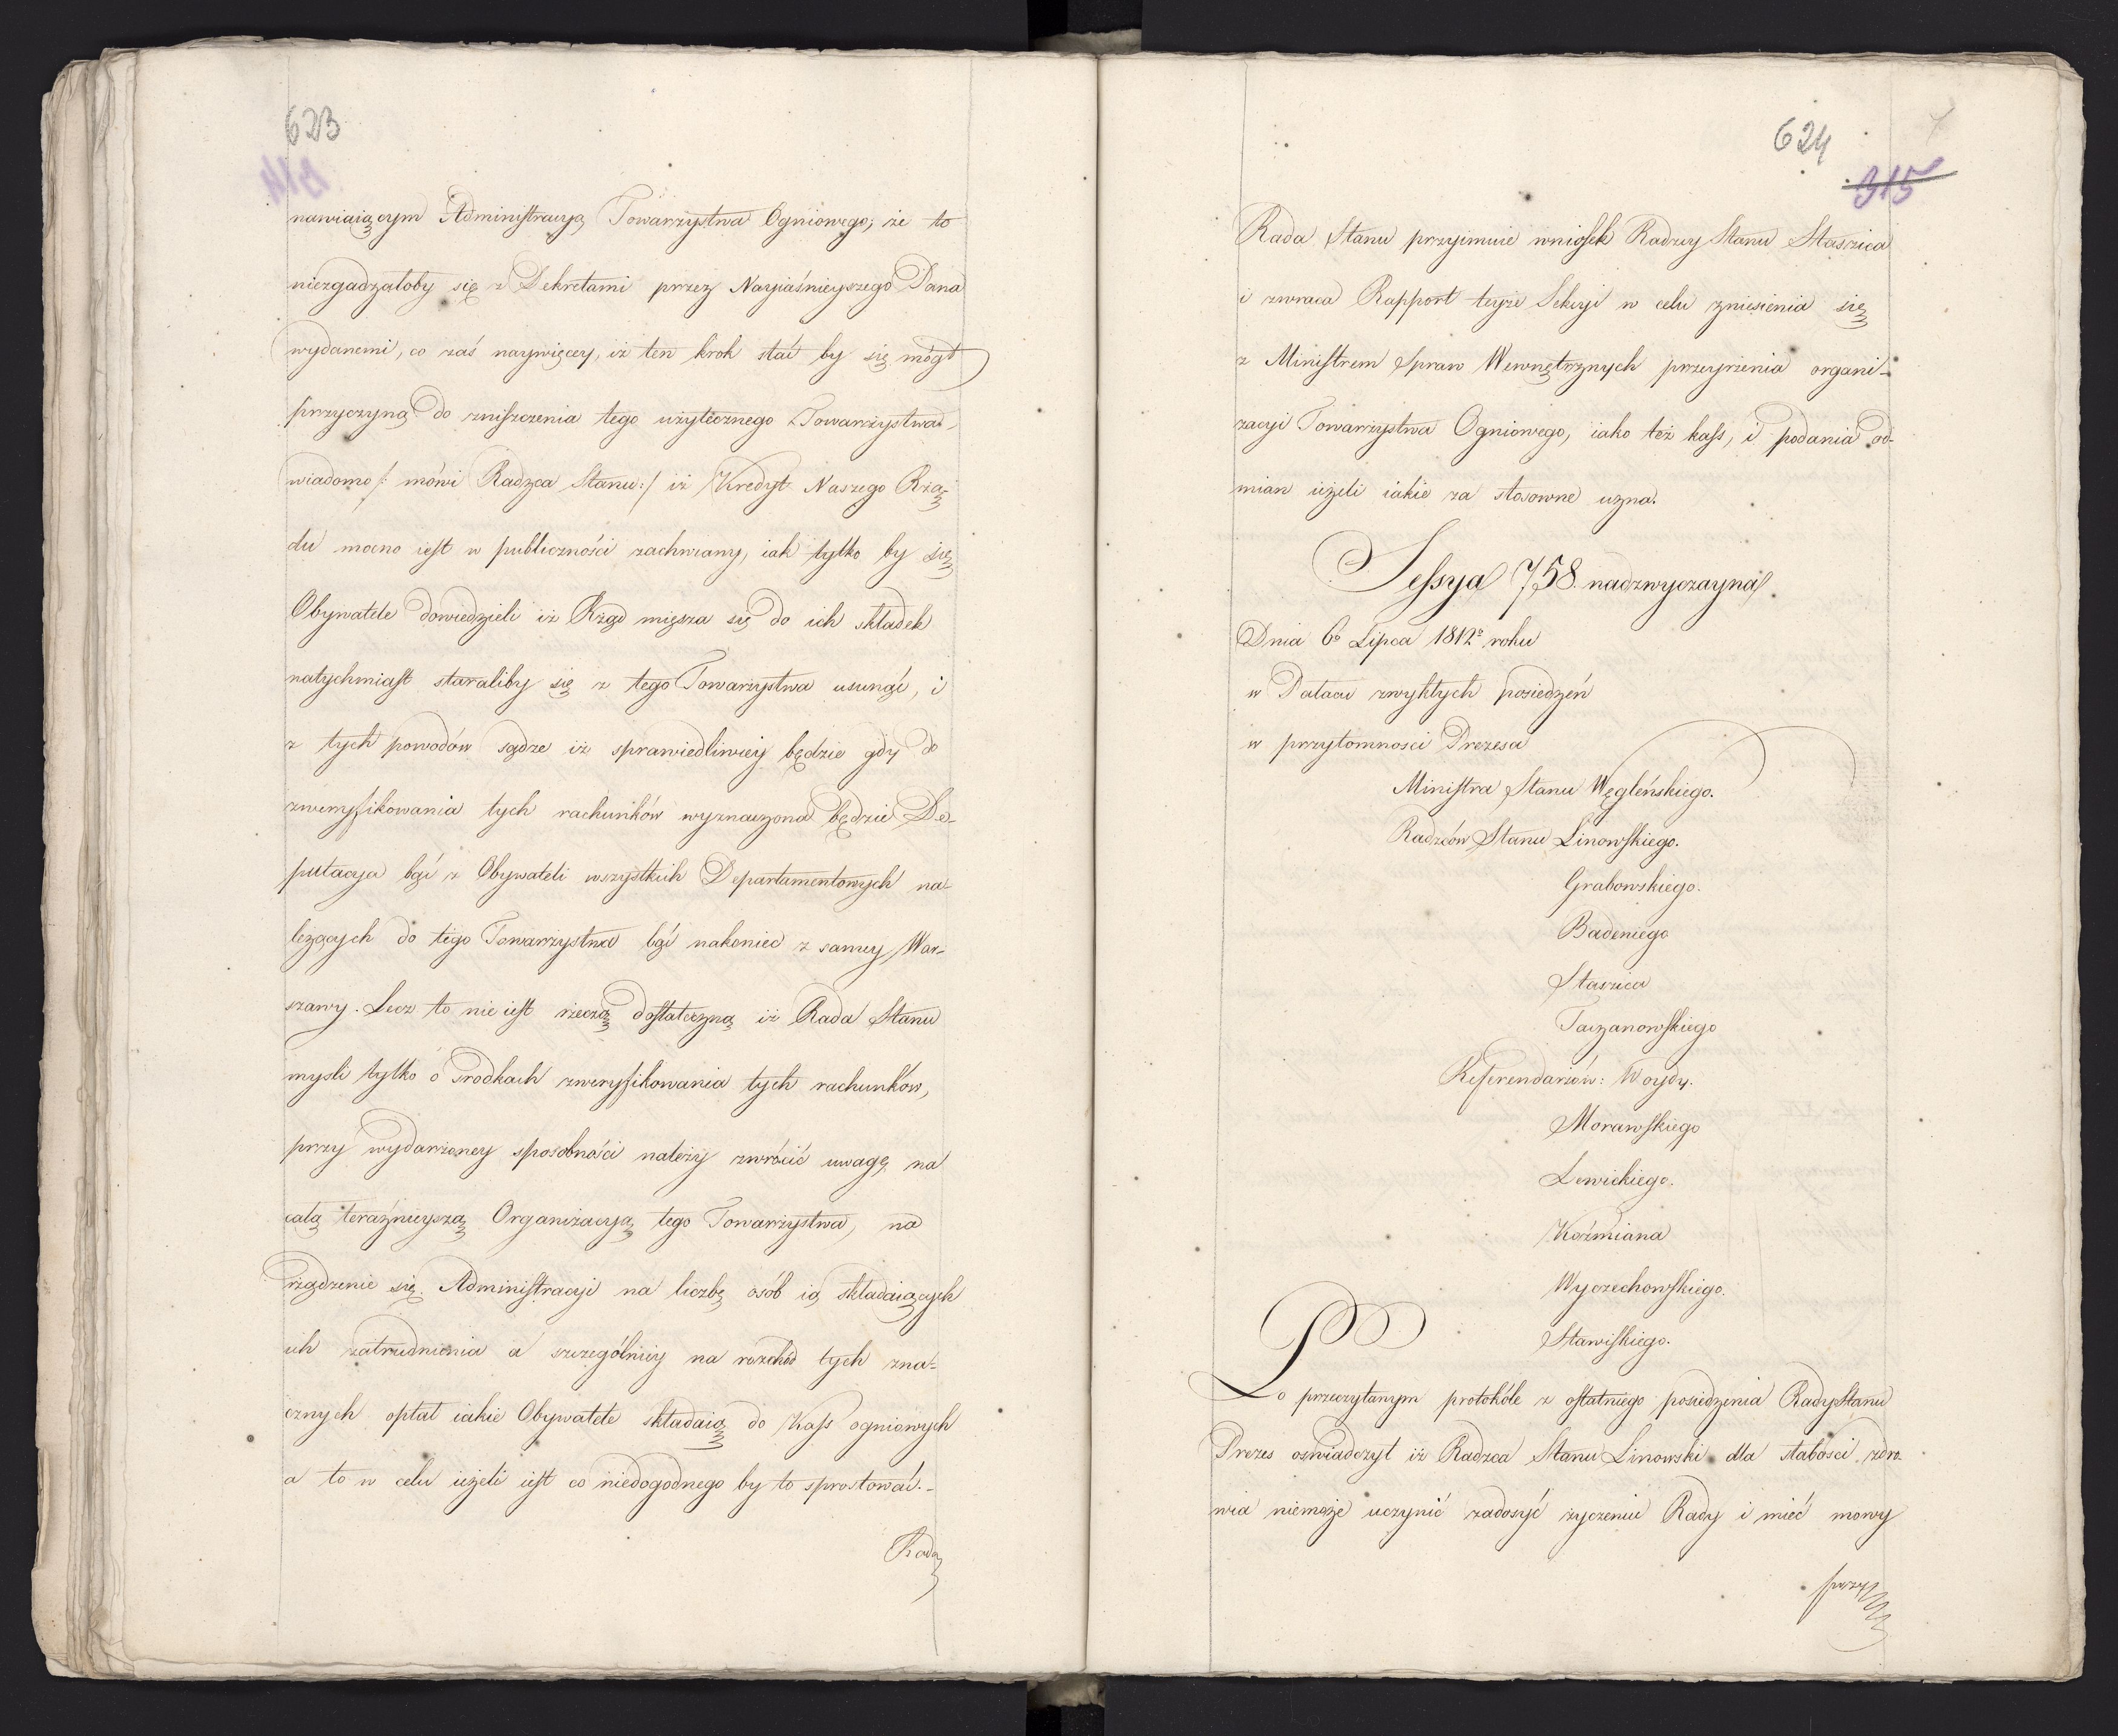 623
nawiaiącym Administracyą Towarzystwa Ogniowego; że to
niezgadzałoby się z Dekretami przez Nayiaśnieyszego Pana
wydanemi, co zaś naywięcey, iż ten krok stać by się mógł
przyczyną do zniszczenia tego użytecznego Towarzystwa,
wiadomo /: mówi Radzca Stanu :/ iż Kredyt Naszego Rzą
du mocno iest w publiczności zachwiany, iak tylko by się
Obywatele dowiedzieli iż Rząd miesza się do ich składek
natychmiast staraliby się z tego Towarzystwa usunąć, i
z tych powodów sądze iż sprawiedliwiey będzie gdy do
zweryfikowania tych rachunków wyznaczona będzie De-
putacya bąć z Obywateli wszystkich Departamentowych na-
lezących do tego Towarzystwa bąć nakoniec z samey War-
szawy. Lecz to nie iest rzeczą dostateczną iż Rada Stanu
mysli tylko o srodkach zweryfikowania tych rachunków,
przy wydarzoney sposobności należy zwrócić uwagę na
całą teraźnieyszą Organizacyą tego Towarzystwa, na
rządzenie się Administracyi na liczbę osób ią składaiących
ich zatrudnienia a szczególniey na rozchód tych zna-
cznych opłat iakie Obywatele składaią do Kass ogniowych
a to w celu ieżeli iest co niedogodnego by to sprostować.-
Rada
624
315
Rada Stanu przyimuie wniosek Radzcy Stanu Staszica
i zwraca Rapport teyże Sekcyi w celu zniesienia się
z Ministrem Spraw Wewnętrznych przeyrzenia organi-
zacyi Towarzystwa Ogniowego, iako też kass, i podania od-
mian ieżeli iakie za stosowne uzna.
Sessya 758. nadzwyczayna.
Dnia 6o Lipca 1812o roku
w Pałacu zwykłych posiedzeń
w przytomnosci Prezesa
Ministra Stanu Węgleńskiego.
Radzców Stanu Linowskiego.
Grabowskiego.
Badeniego
Staszica
Taczanowskiego
Referendarzów: Woydy.
Morawskiego
Lewickiego.
Koźmiana
Wyczechowskiego.
Stawiskiego.
Po przeczytanym protokóle z ostatniego posiedzenia Rady Stanu
Prezes oswiadczył iż Radzca Stanu Linowski dla słabości zdro-
wia niemoże uczynić zadosyć życzeniu Rady i mieć mowy
przy